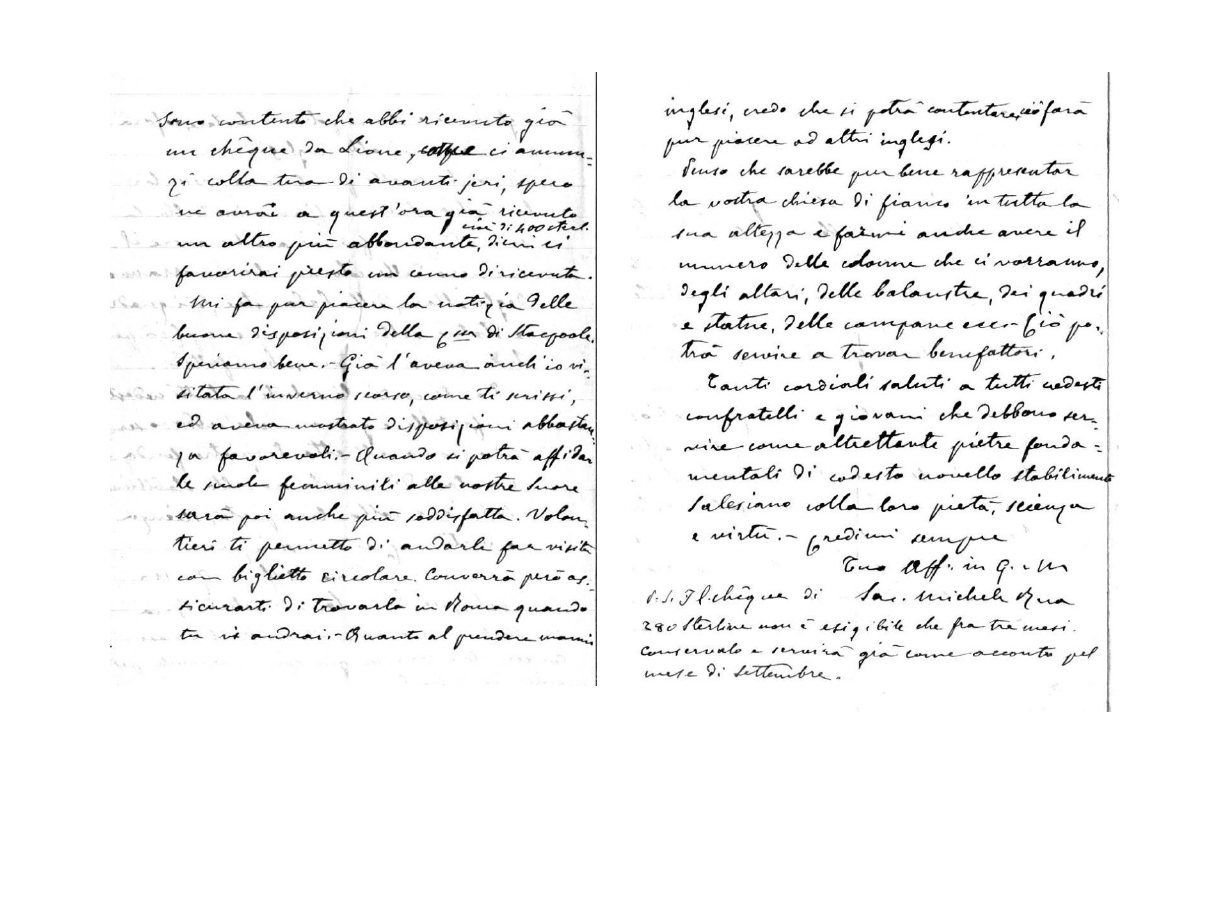 Sono contento che abbi ricevuto già
un chêque da Lione, ci annun=
zi colla tua di avanti jeri, spero
ne avrai a quest'ora già ricevuto
di 400 sterl.
un altro più abbondante, di cui ci
favorirai presto un cenno di ricevuta.
Mi fa pur piacere la notizia delle
buone disposizioni della Cssa di Stacpoole.
Speriamo bene.- Già l'aveva anch'io vi-
sitata l'inverno scorso, come ti scrissi,
ed aveva mostrato disposizioni abbastan-
za favorevoli.- Quando si potrà affidar
le scuole femminili alle nostre Suore
sarà poi anche più soddisfatta. Volon-
tieri ti permetto di andarle far visita
con biglietto circolare. Converrà però as-
sicurarti di trovarla in Roma quando
tu vi andrai.- Quanto al prendere
inglesi, credo che si potrà contentare, ciò farà
pur piacere ad altri inglesi.
Penso che sarebbe pur bene rappresentar
la vostra chiesa di fianco in tutta la
sua altezza e farmi anche avere il
numero delle colonne che ci vorranno,
degli altari, delle balaustre, dei quadri
e statue, delle campane ecc- Ciò po-
trà servire a trovar benefattori.
Tanti cordiali saluti a tutti codesti
confratelli e giovani che debbono ser-
vire come altrettante pietre fonda=
mentali di codesto novello stabilimento
Salesiano colla loro pietà, scienza
e virtù.- Credimi sempre
Tuo Aff. in G. e M
Sac. Michele Rua
P.S. Il chêque di
280 Sterline non è esigibile che fra tre mesi.
Conservalo e servirà già come acconto pel
mese di Settembre.